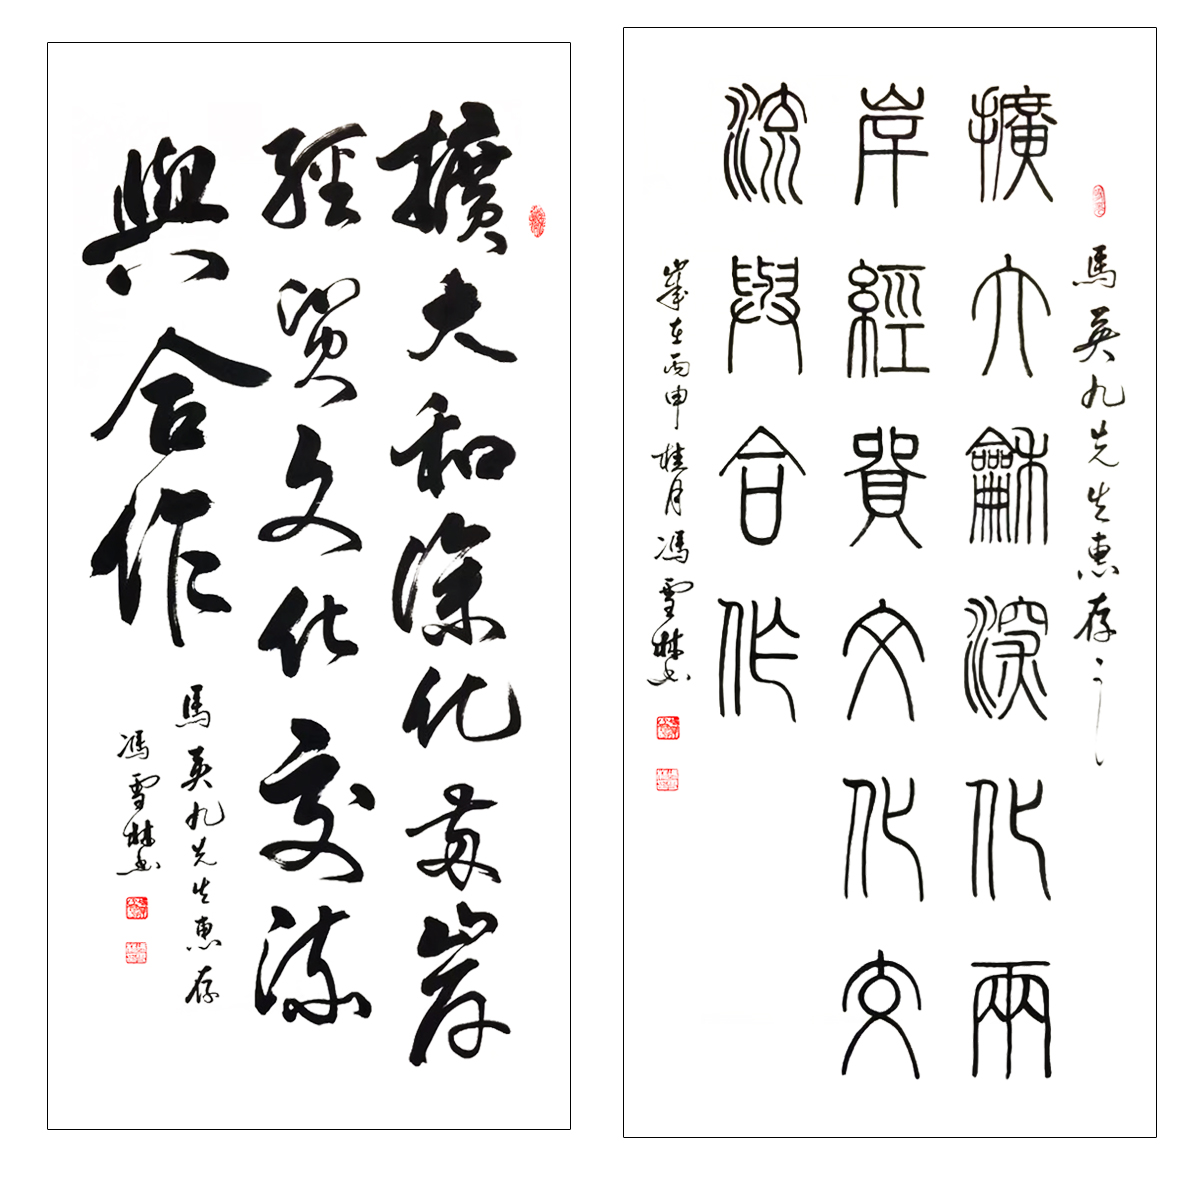 擴大和深化兩岸
經貿文化交流
與合作
馬英九先生惠存
馮雪林書
馬英九先生惠存
擴大龢深化兩
岸經貿文化交
流與合作
歲在丙申桂月馮雪林書